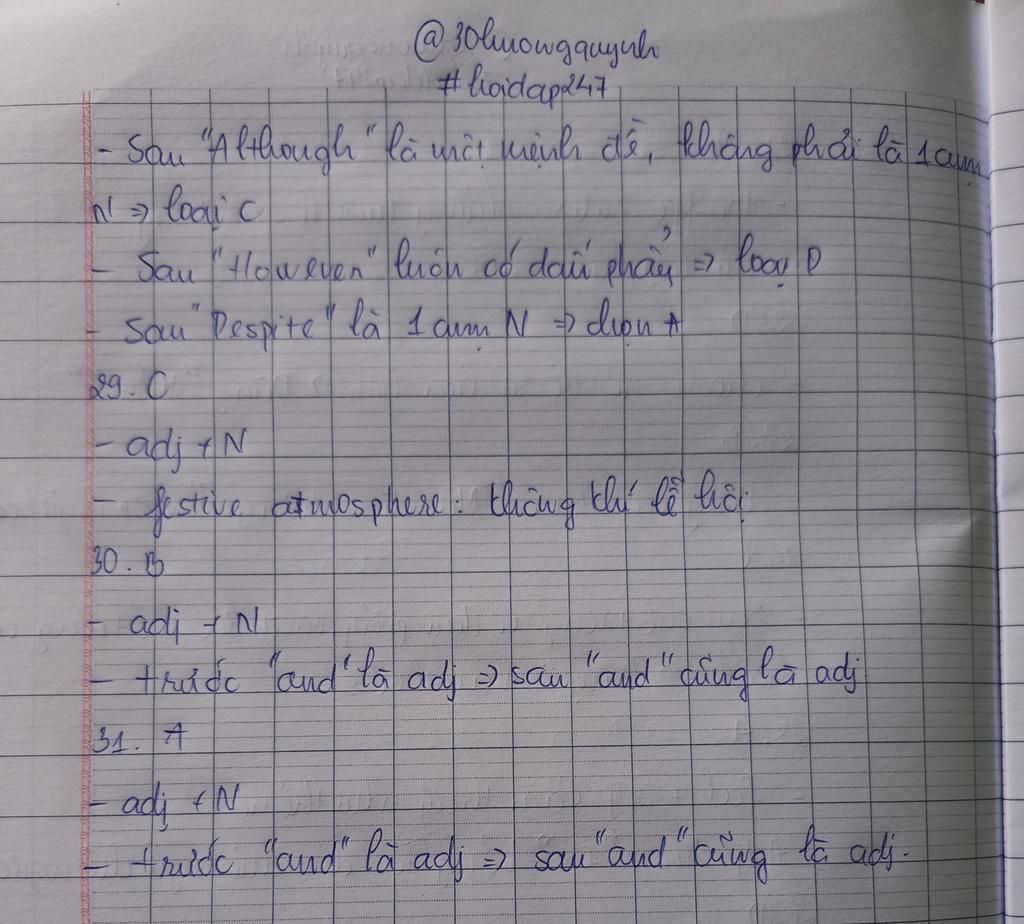 @30huongquynh
#hoidap247
- Sau "Although" là một mệnh đề, không phải là 1 cụm
N => loại C
- Sau "However" luôn có dấu phẩy => loại D
- Sau "Despite" là 1 cụm N => chọn A
29. C
- adj + N
- festive atmosphere: không khí lễ hội
30. B
- adj + N
- trước "and" là adj => sau "and" cũng là adj
31. A
- adj + N
- trước "and" là adj => sau "and" cũng là adj.